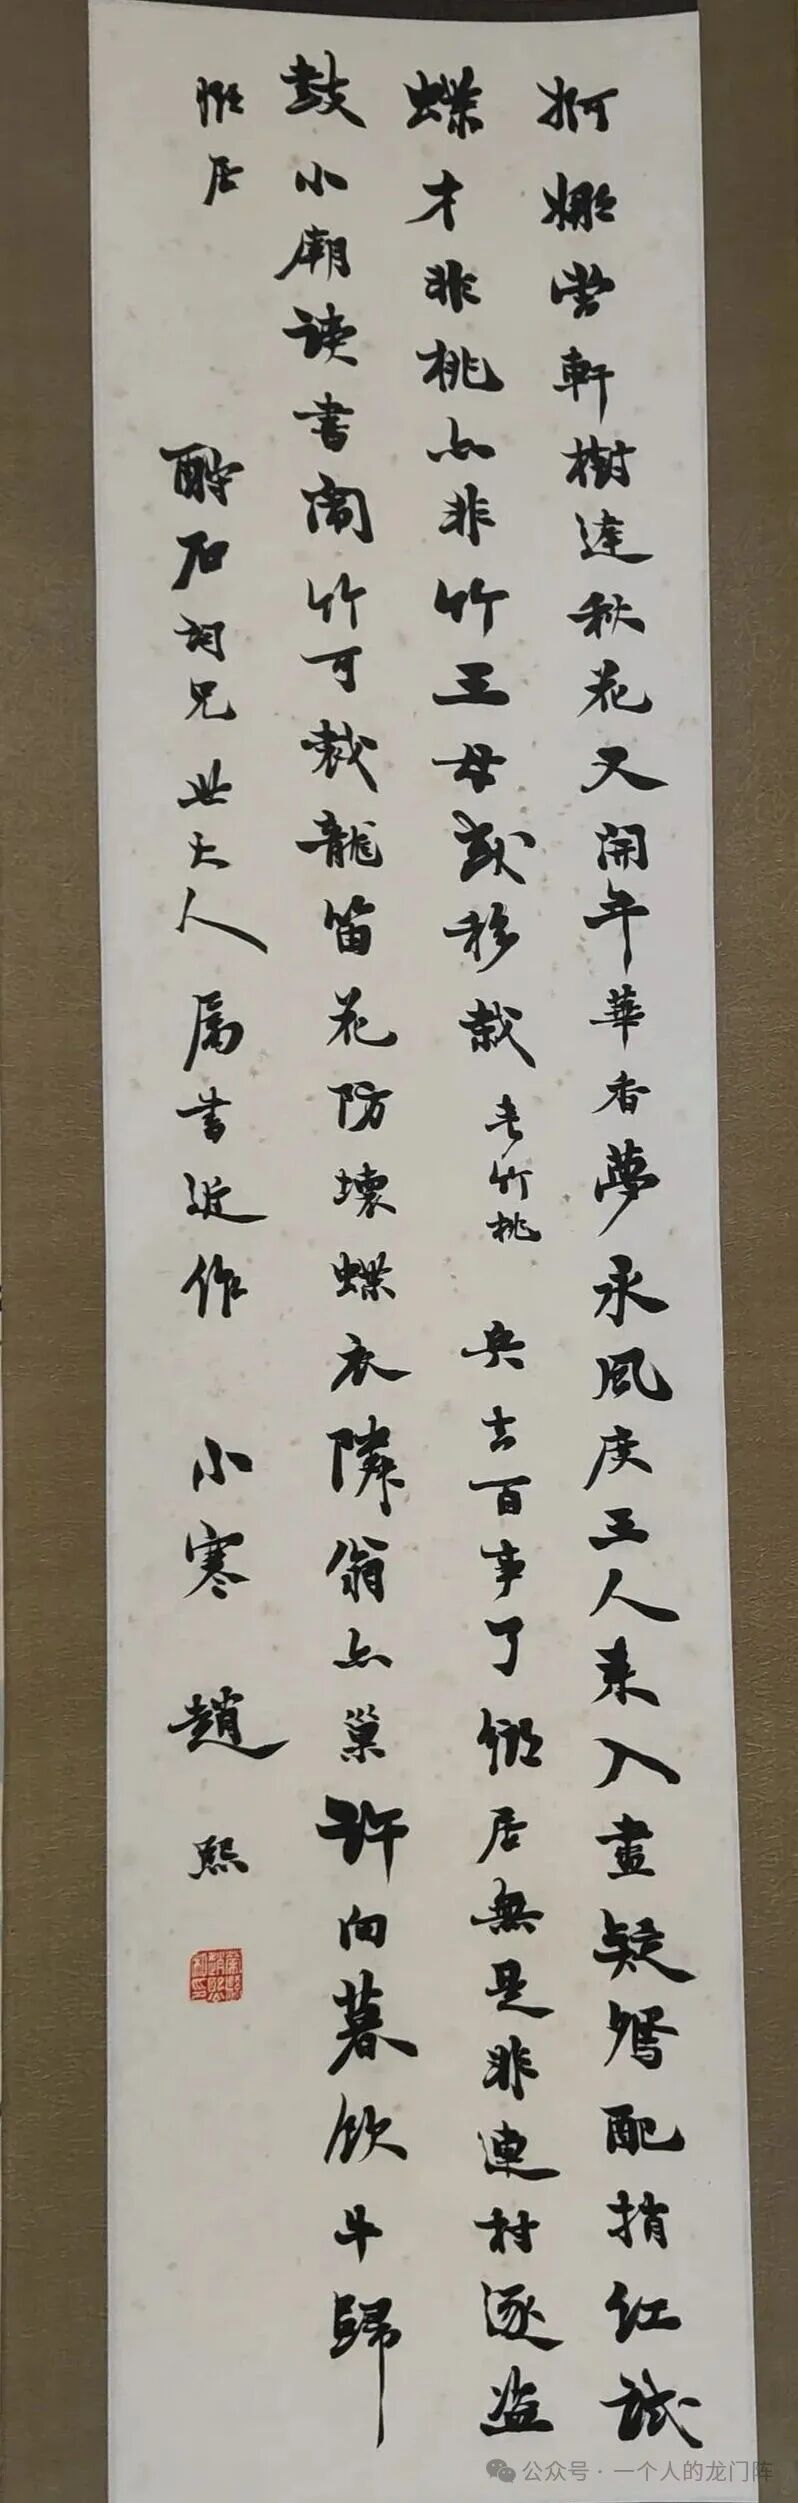 婀娜當軒樹達秋花又開年華香夢永風度玉人來入畫疑鴛配捎紅試
蝶才非桃亦非竹王母或移栽 夾竹桃 兵去百事了鄉居無是非連村逐盜
鼓小廟讀書闈竹可裁龍笛花防壞蝶衣隣翁亦巢許向暮飲牛歸
鄉居
酔石詞兄世大人屬書近作 小寒 趙熙
公众号·一个人的龙门阵